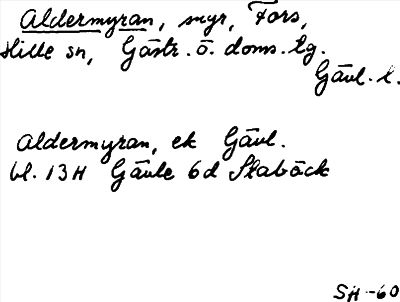 Aldermyran, myr, Fors,
Hille sn, Gästr. ö. doms. lg.
Gävl. l.
Aldermyran, ek Gävl.
bl. 13H Gävle 6d Stabäck
SH -60